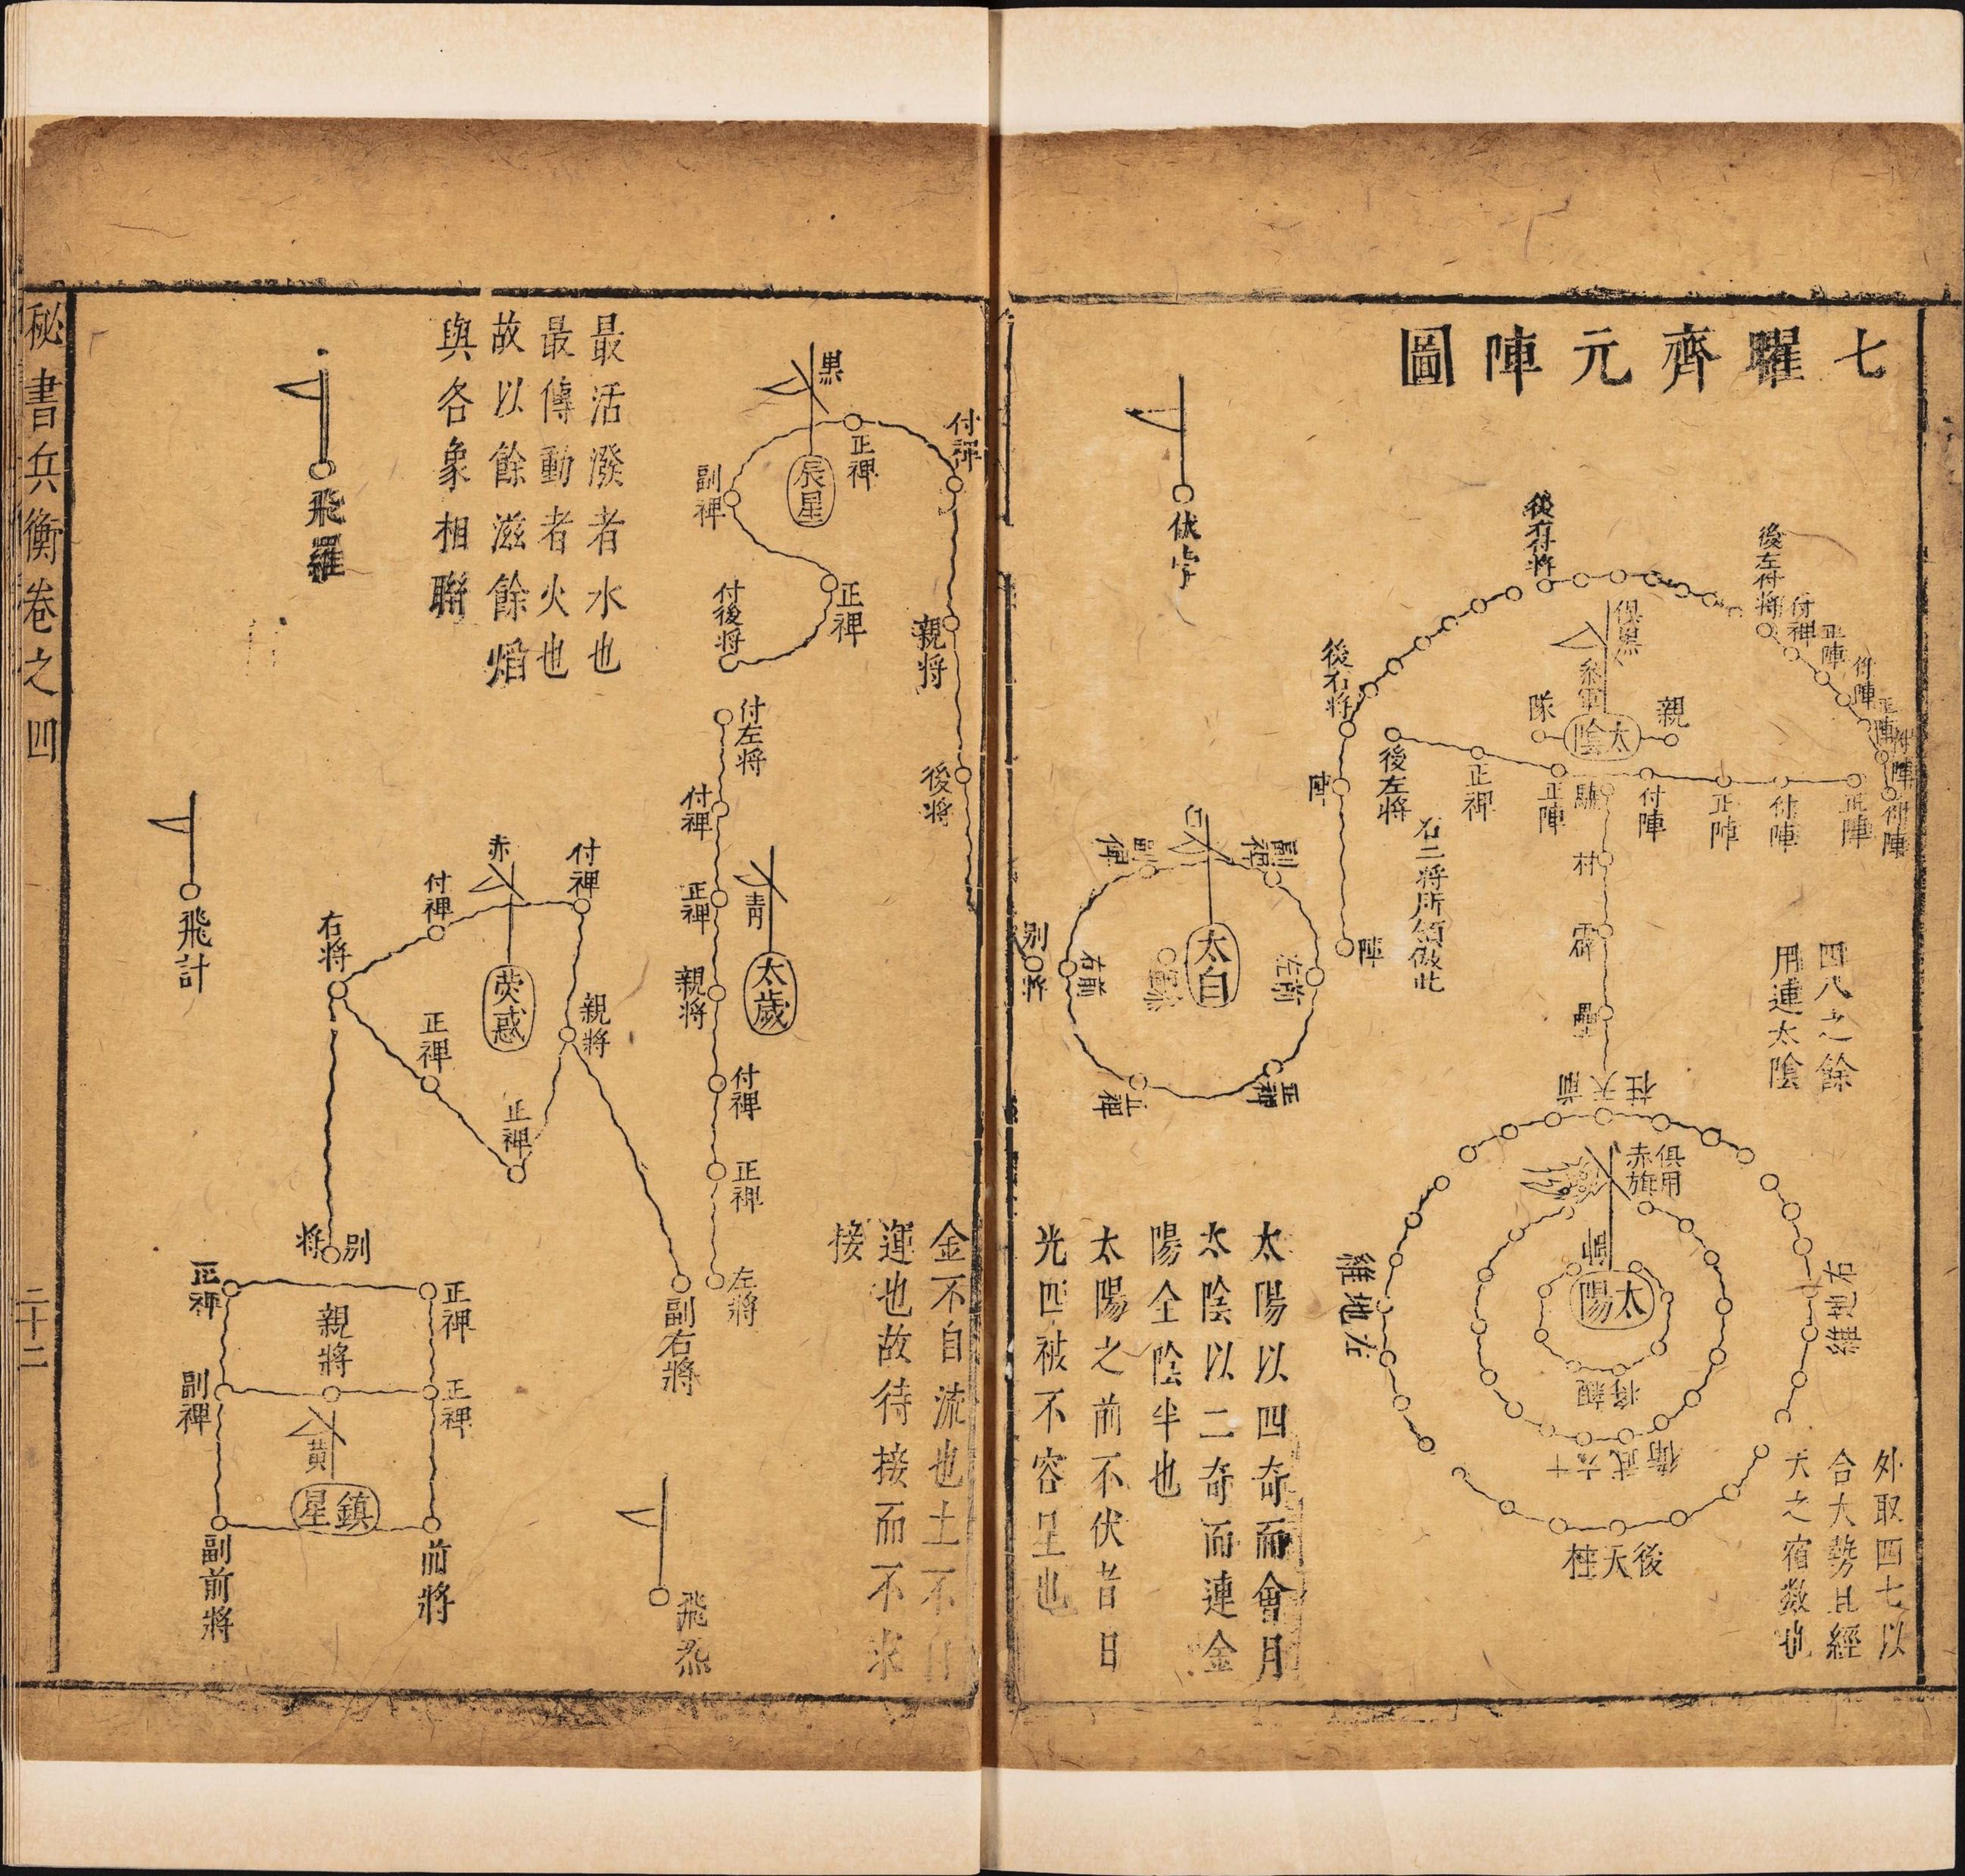 七曜齊元陣圖
後右付將
後左付將
付裨
正陣
付陣
正陣
付陣
付陣
俱黑
參軍
太陰
親
隊
後右將
陣
陣
後左將
正裨
正陣
付陣
正陣
付陣
正陣
右二將所領倣此
四八之餘
用連太陰
前天柱
俱用
赤旗
太陽
親將
右地維
左地維
後天柱
外取四七以
合大勢且經
天之宿數也
伏孛
太白
副裨
副裨
左前
右前
正裨
正裨
別將
太陽以四奇而會月
太陰以二奇而連金
陽全陰半也
太陽之前不伏者日
光四被不容星也
金不自流也土不自
運也故待接而不求
接
黑
辰星
付裨
正裨
副裨
正裨
付後將
親將
後將
付左將
付裨
正裨
青
太歲
親將
付裨
正裨
左將
最活潑者水也
最傳動者火也
故以餘滋餘焰
與各象相聯
飛羅
飛計
赤
熒惑
付裨
付裨
右將
正裨
親將
正裨
副右將
別將
正裨
正裨
親將
副裨
正裨
黃
鎮星
副前將
前將
飛炁
秘書兵衡卷之四
二十二